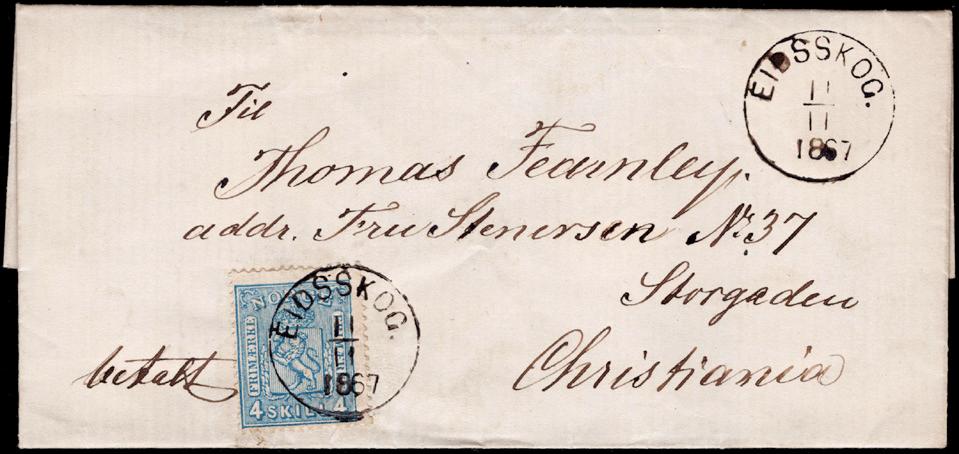 EIDSSKOG.
11
11
1867
Til
Thomas Fearnley.
addr. Fru Stenersen No. 37
Storgaden
Christiania
betalt
NO
FRIMÆRKE
4 SKILL 4
EIDSSKOG.
11
11
1867